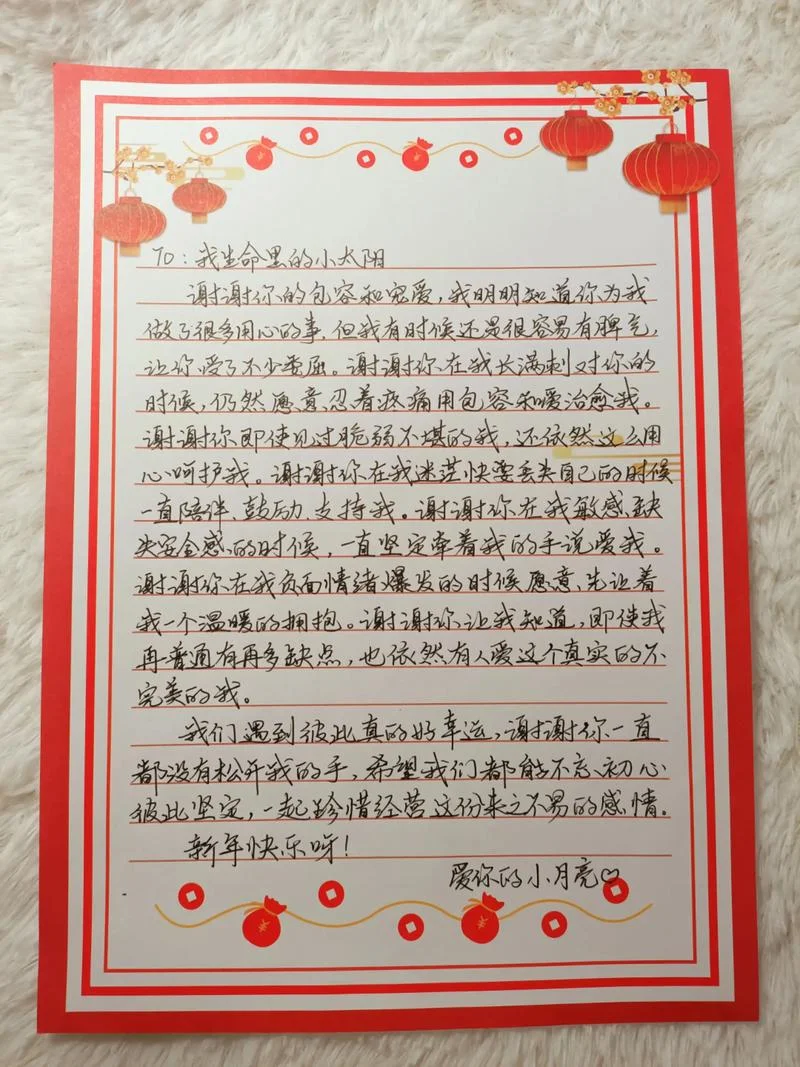 TO：我生命里的小太阳
谢谢你的包容和宠爱，我明明知道你为我
做了很多用心的事，但我有时候还是很容易有脾气，
让你受了不少委屈。谢谢你在我长满刺对你的
时候，仍然愿意忍着疼痛用包容和爱治愈我。
谢谢你即使见过脆弱不堪的我，还依然这么用
心呵护我。谢谢你在我迷茫快要丢失自己的时候
一直陪伴、鼓励、支持我。谢谢你在我敏感、缺
失安全感的时候，一直坚定牵着我的手说爱我。
谢谢你在我负面情绪爆发的时候愿意先让着
我一个温暖的拥抱。谢谢你让我知道，即使我
再普通有再多缺点，也依然有人爱这个真实的不
完美的我。
我们遇到彼此真的好幸运，谢谢你一直
都没有松开我的手，希望我们都能不忘初心
彼此坚定，一起珍惜经营这份来之不易的感情。
新年快乐呀！
爱你的小月亮♡